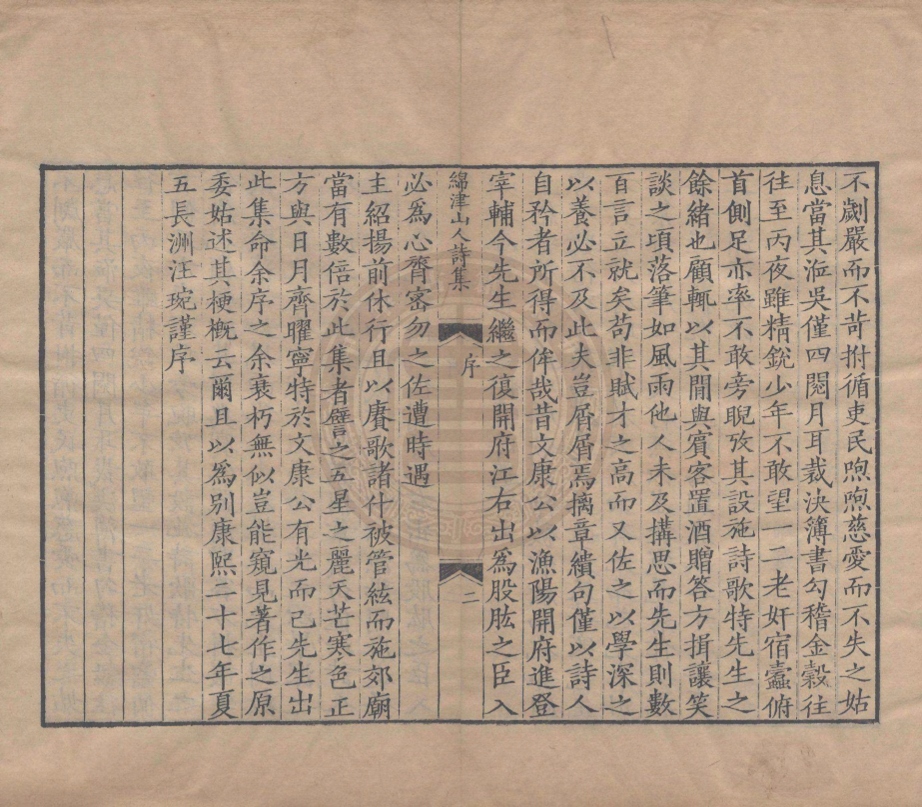 不劌嚴而不苛拊循吏民喣喣慈愛而不失之姑
息當其涖吳僅四閱月耳裁決簿書勾稽金穀往
往至丙夜雖精銳少年不敢望一二老奸宿蠹俯
首側足亦率不敢旁睨攷其設施詩歌特先生之
餘緒也顧輒以其閒與賓客置酒贈答方揖讓笑
談之頃落筆如風雨他人未及搆思而先生則數
百言立就矣苟非賦才之高而又佐之以學深之
以養必不及此夫豈屑屑焉摛章繢句僅以詩人
自矜者所得而侔哉昔文康公以漁陽開府進登
宰輔今先生繼之復開府江右出爲股肱之臣入
綿津山人詩集 序 二
必爲心膂密勿之佐遭時遇
主紹揚前休行且以賡歌諸什被管絃而施郊廟
當有數倍於此集者譬之五星之麗天芒寒色正
方與日月齊曜寧特於文康公有光而已先生出
此集命余序之余衰朽無似豈能窺見著作之原
委姑述其梗槪云爾且以爲別康熙二十七年夏
五長洲汪琬謹序